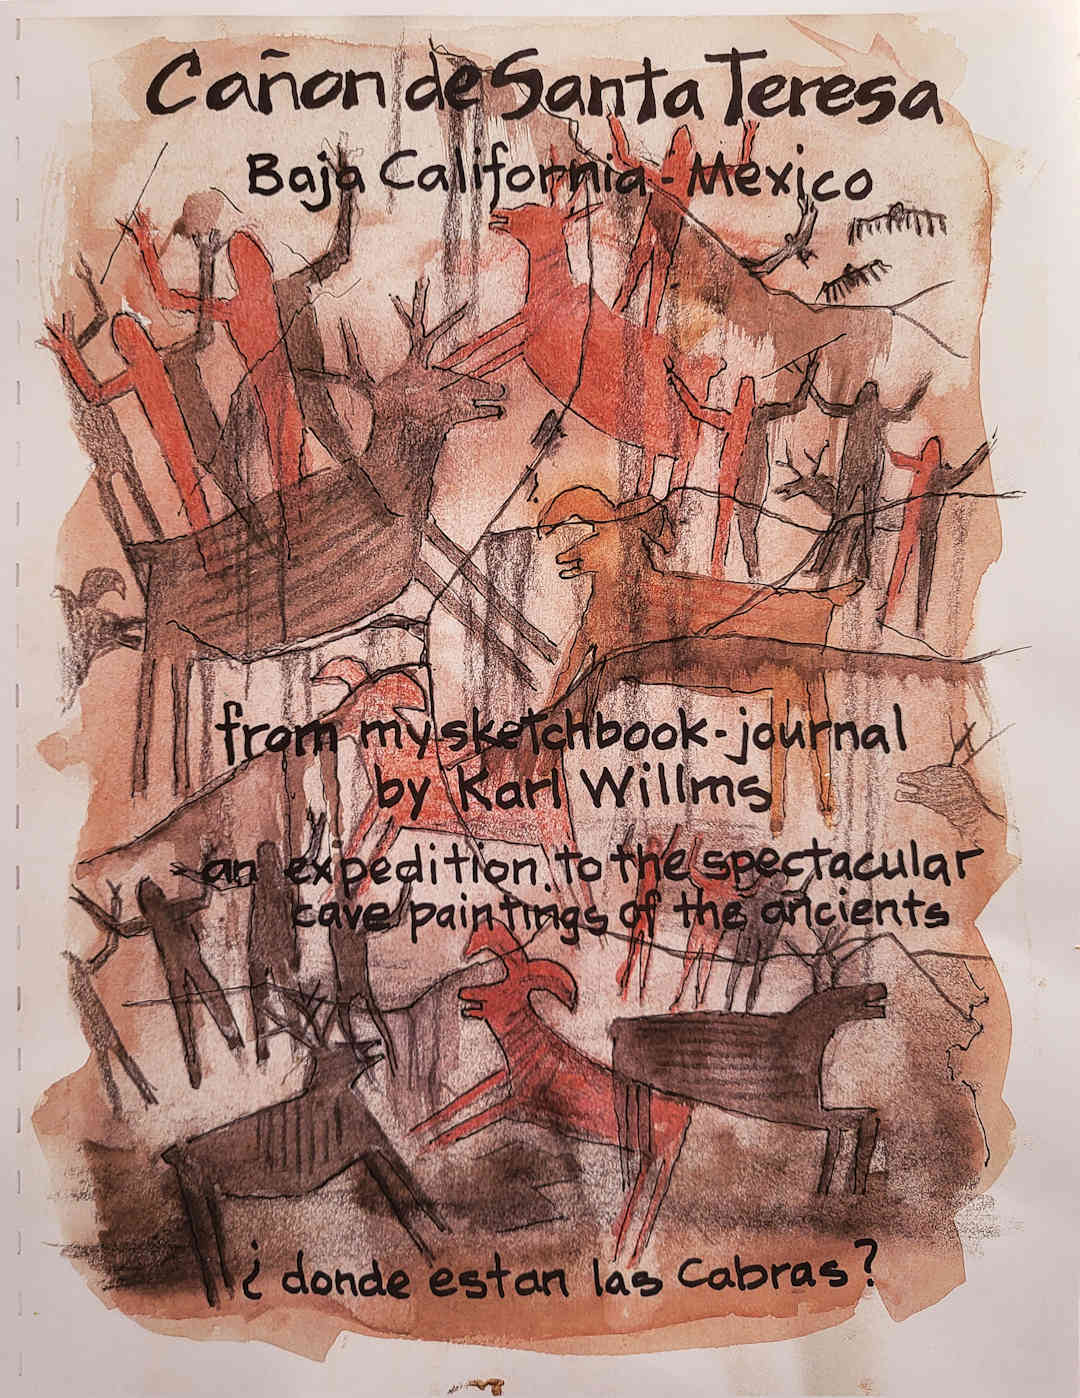 Cañon de Santa Teresa
Baja California - Mexico
from my sketchbook - journal
by Karl Willms
an expedition to the spectacular
cave paintings of the ancients
¿ donde estan las cabras ?